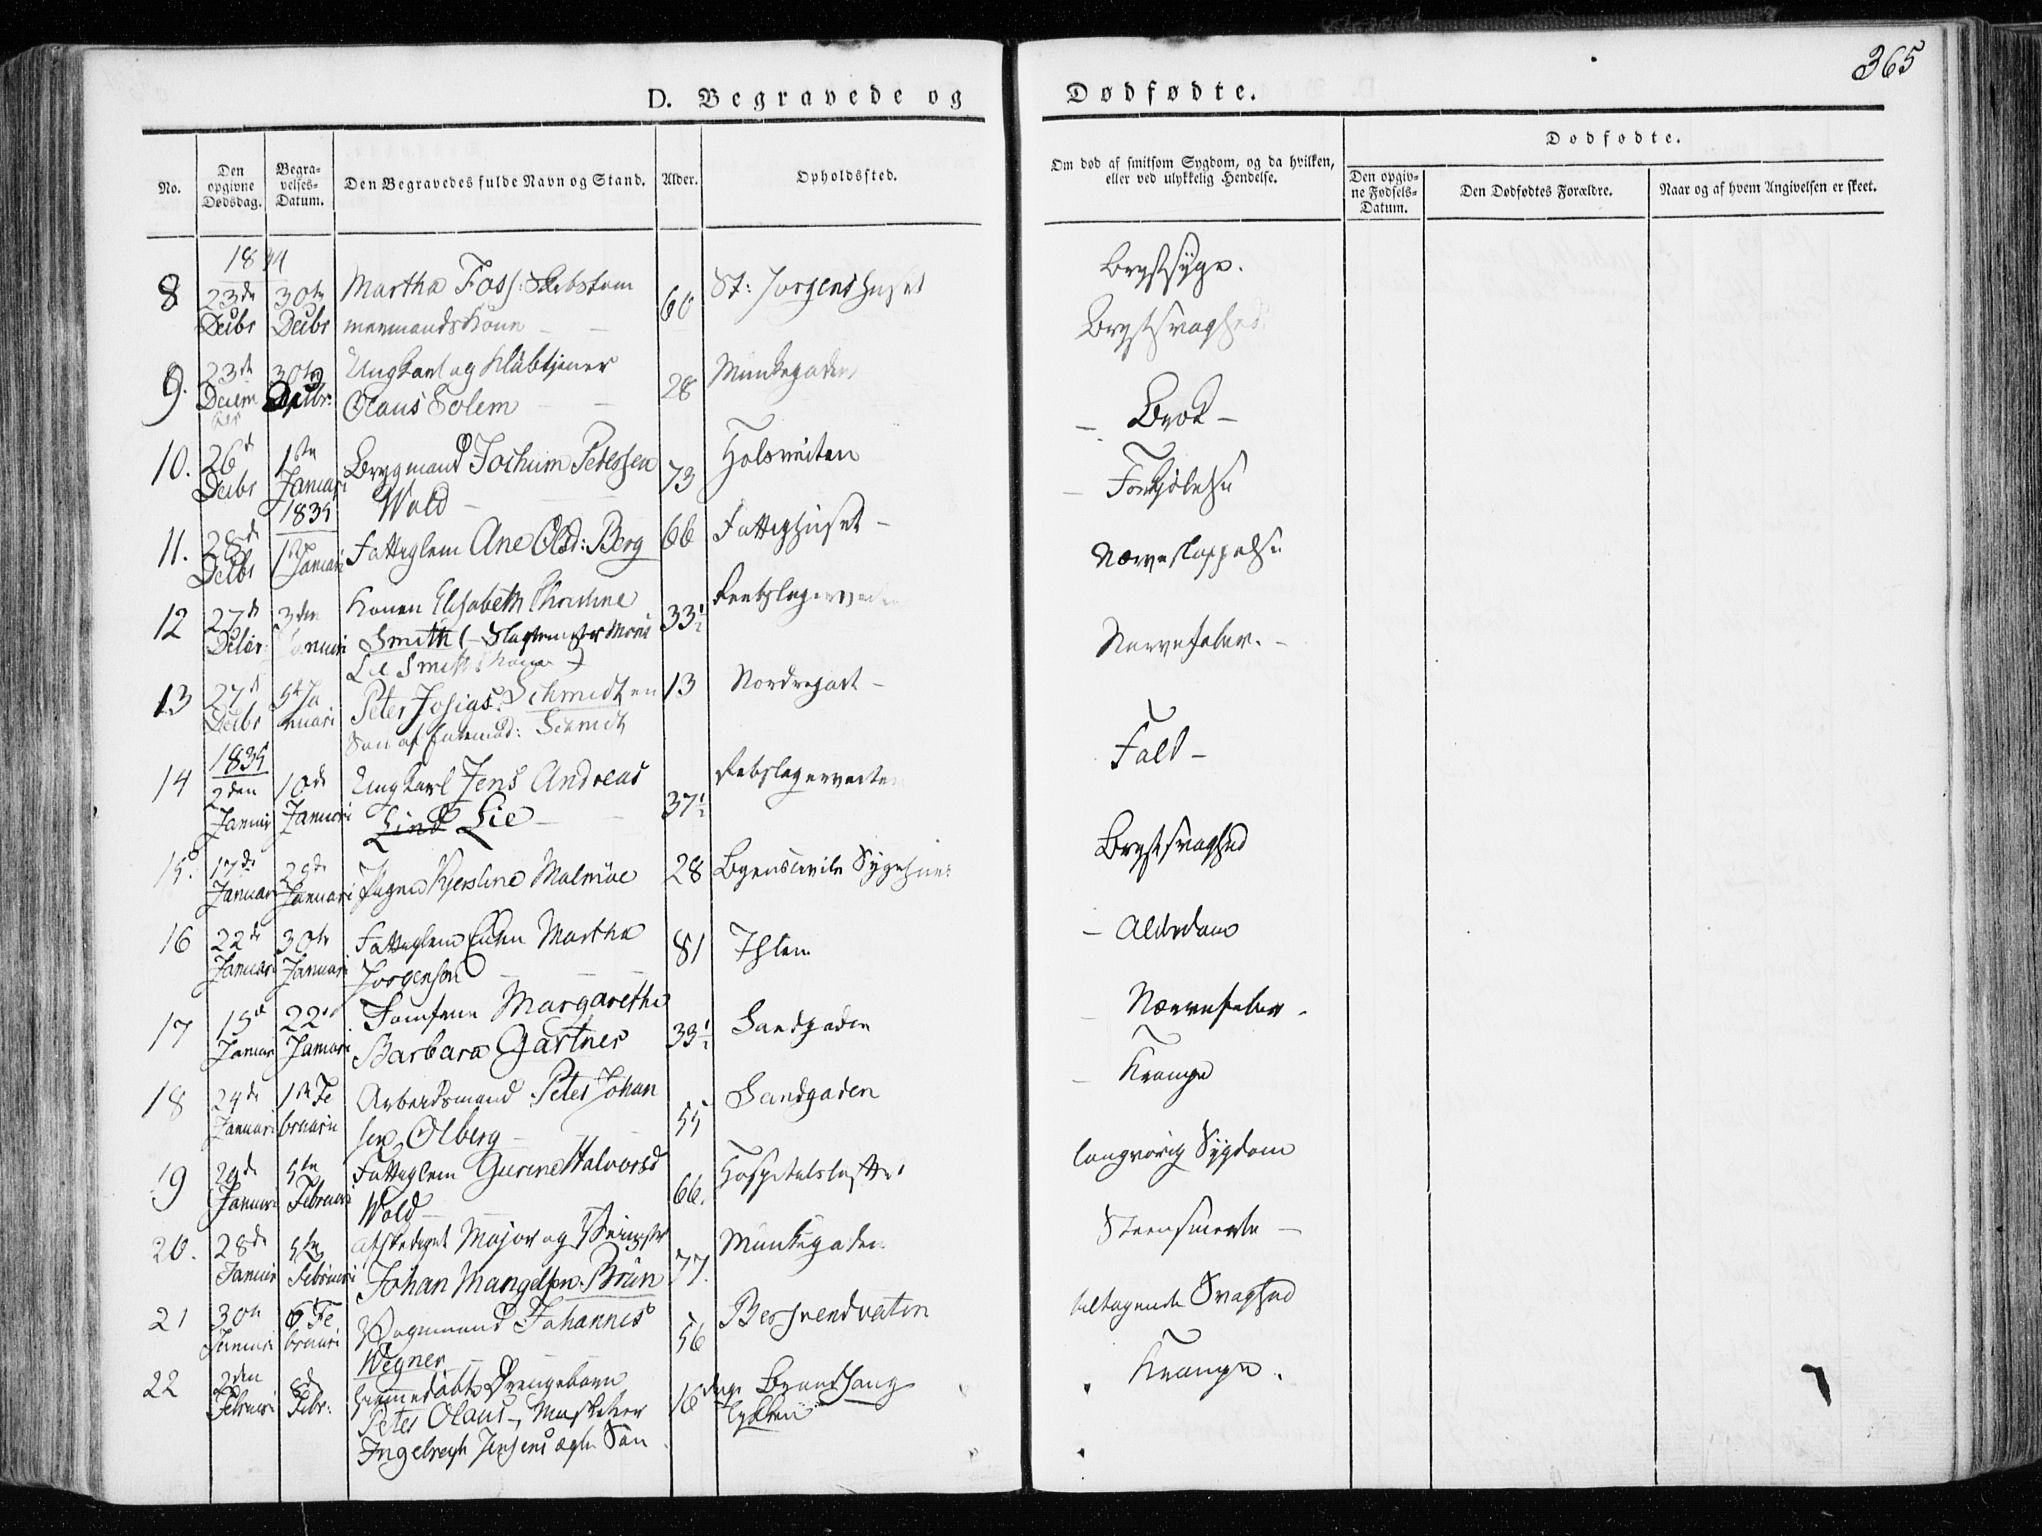 365
D. Begravede og Dødfødte.
No.
Den opgivne Dødsdag.
Begravelses-Datum.
Den Begravedes fulde Navn og Stand.
Alder.
Opholdssted.
Om død af smitsom Sygdom, og da hvilken, eller ved ulykkelig Hendelse.
Dødfødte.
Den opgivne Fødsels-Datum.
Den Dødfødtes Forældre.
Naar og af hvem Angivelsen er skeet.
1834
8 23de Decbr 30te Decbr Martha Foss: Skibstømmermands Kone 60 St: Jørgenshuset Brystsyge.
Brystsvaghed
9. 23de Decem 30te Decbr. Ungkarl og Klubtjener Olaus Solem 28 Munkegaden
Brok
10. 26d Decbr 1ste Januari 1835 Brygmand Jochum Petersen Wold 73 Holsveiten
Forkjølelse
11. 28d Decbr 1ste Januari Fattiglem Ane Olsd: Berg 66 Fattighuset
Nærveslappelse
12 27de Decbr 3den Januari Konen Elisabeth Christine Smith (Slagtermester Lie Smiths Kone) 33½ Reebslagerveiten
Nervefeber.
13 27d Decbr 5te Januari Peter Josias Schmidt en Søn af Schmidt 13 Nordregart
Fald
1835
14 2den Januar 10de Januari Ungkarl Jens Andreas Lind Lie 37½ Rebslagerveiten
Brystsvaghed
15. 17de Januari 29de Januari Pigen Kjerstine Malmöe 28 Byens civile Sygehuus
16 22de Januari 30te Januari Fattiglem Enken Martha Jørgensen 81 Ihlen
Alderdom
17 15d Januar 22d Januari Jomfrue Margarethe Barbara Gartner 33½ Sandgaden
Nærvefeber.
18 24de Januari 1ste Februari Arbeidsmand Peter Johansen Ølberg 55 Sandgaden
Krampe
19 29de Januari 5te Februari Fattiglem Gurine Halvorsd Wold 66. Hospitalsløkken
langvarig Sygdom
20. 28de Januar 5te Februari afskediget Major og Johan Mangelsen Brün 77. Munkegaden
Steensmerte
21 30te Januari 6 Februari Vognmand Johannes Wegner 56 Bersvendveiten
tiltagende Svaghed
22 2den Februari 8d Febr: hjemmedøbt Drengebarn Peter Olaus, Musketeer Ingebregt Jensens ægte Søn 16 dage
Krampe.